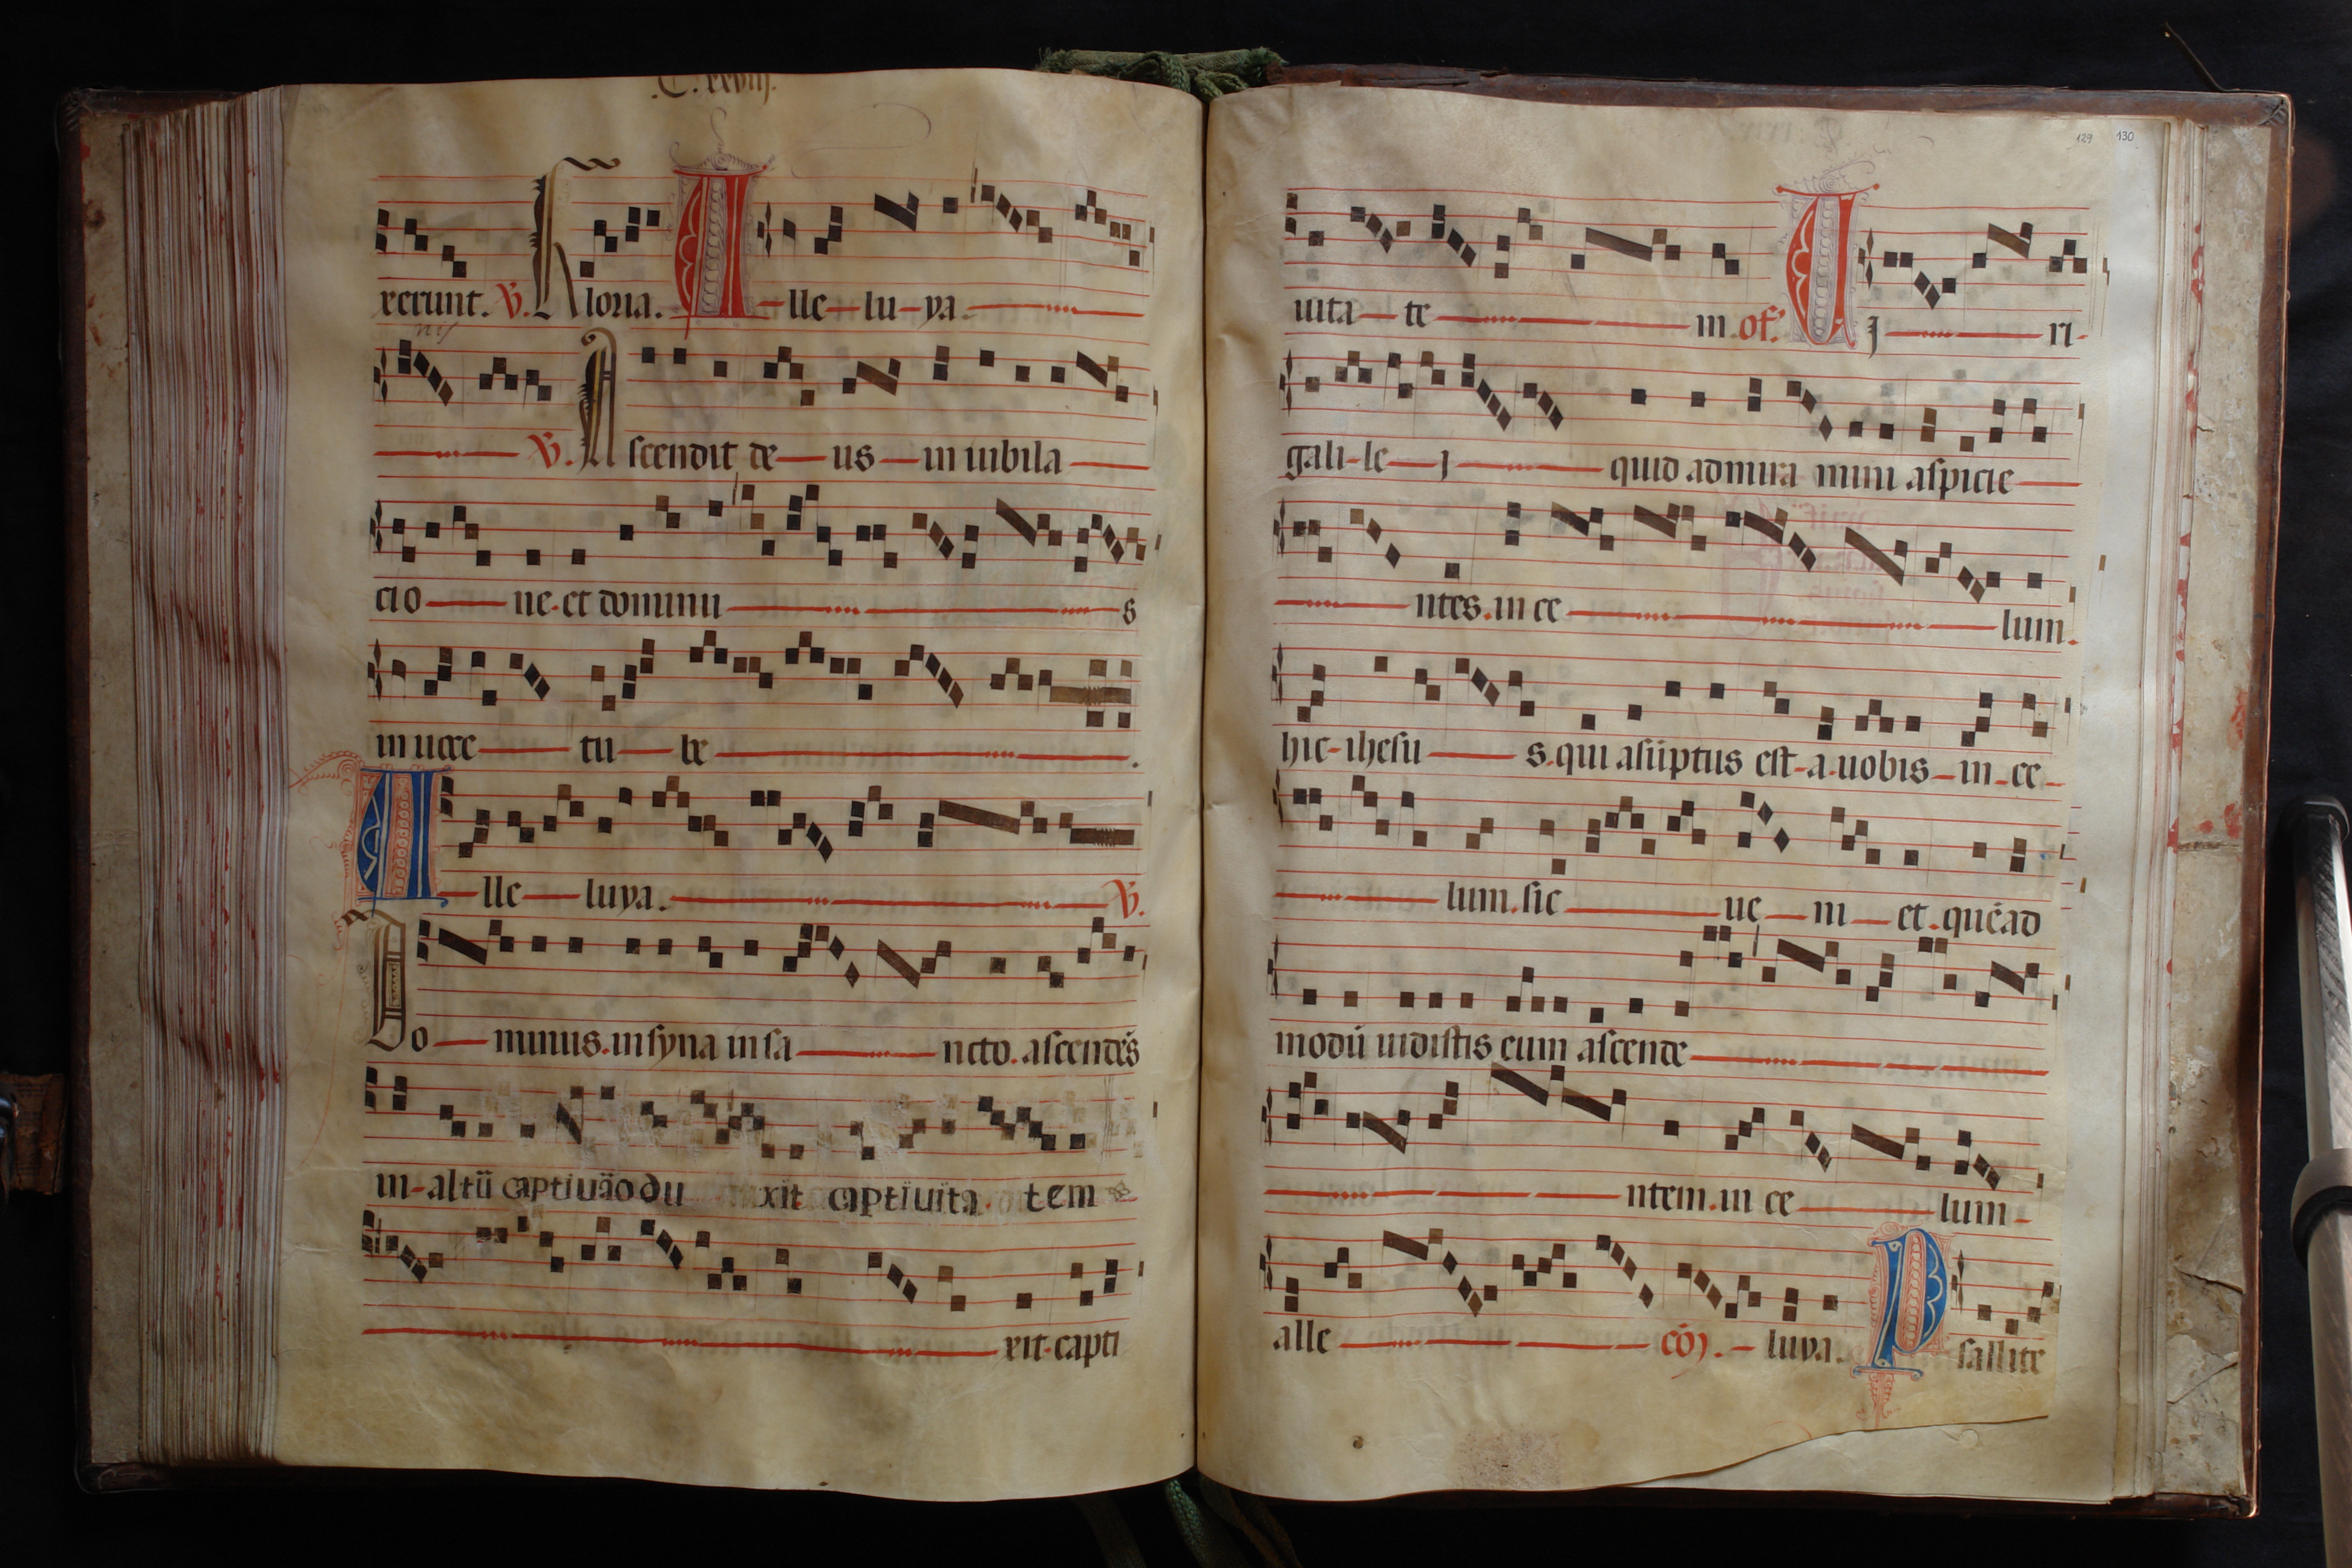 .C. xxviij.
xerunt. V. Gloria. A lle lu ya
V. Ascendit de us in iubila
cio ne et dominu s
in uoce tu be .
A lle luya. V.
Do minus in syna in sa ncto. ascendēs
in altū captiuāo du xit captiuita tem
xit capti
129 130
uita te m of. Uj ri
gali le j quid admira mini aspicie
ntes in ce lum.
hic ihesu s qui asūptus est a uobis in ce
lum. sic ue ni et quēad
modū uidistis eum ascende
ntem in ce lum
alle cōȷ. luya. Psallite